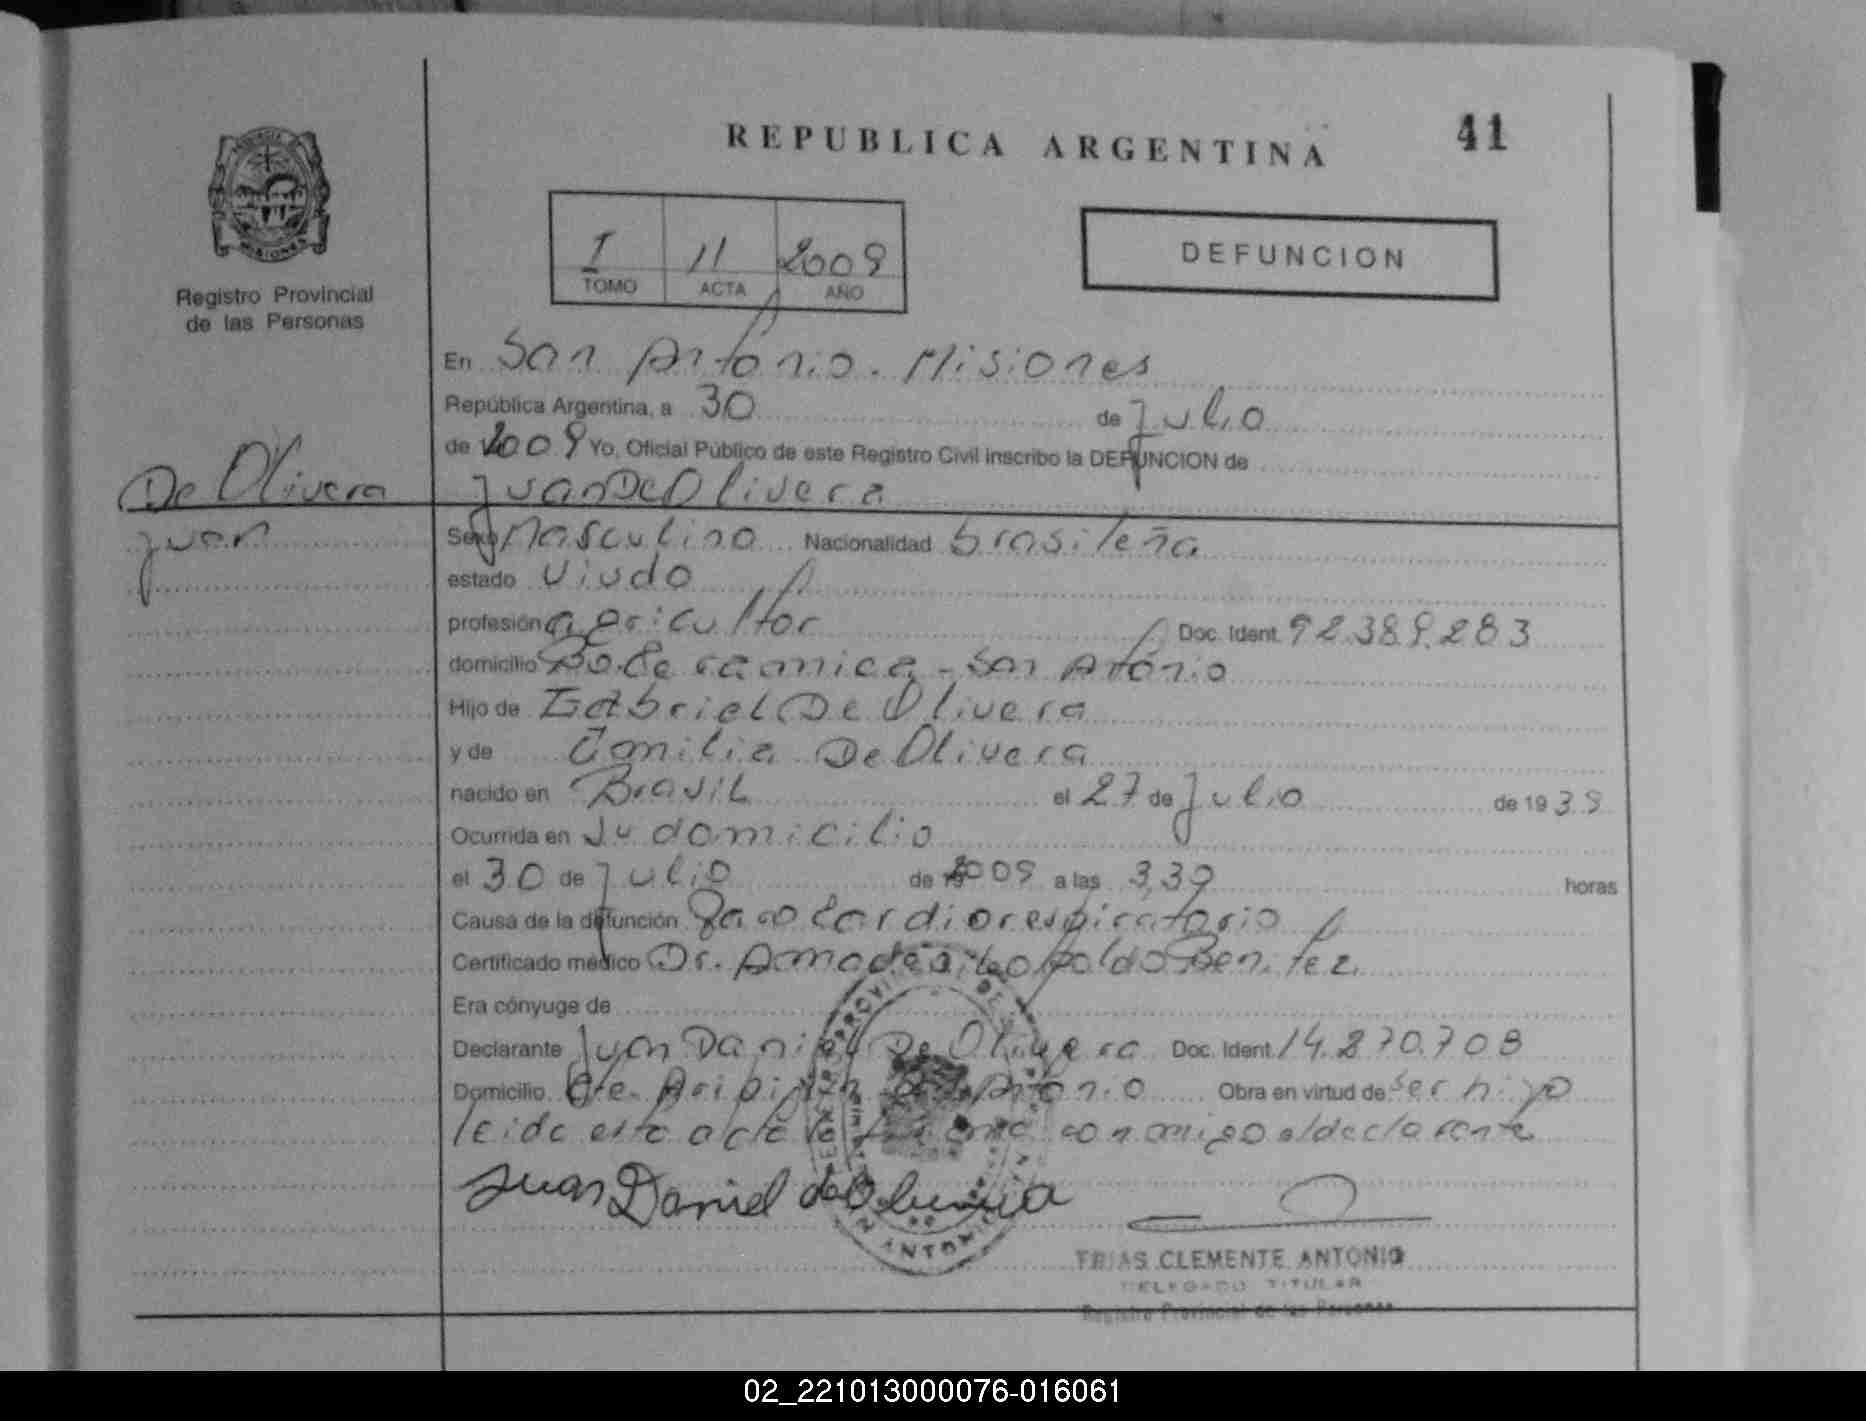 REPUBLICA ARGENTINA
41
I 11 2009
TOMO ACTA AÑO
DEFUNCION
Registro Provincial
de las Personas
En San Antonio. Misiones
República Argentina, a 30 de Julio
de 2009 Yo, Oficial Público de este Registro Civil inscribo la DEFUNCION de
De Olivera
Juan
Juan De Olivera
Sexo Masculino Nacionalidad brasileña
estado Viudo
profesión agricultor Doc. Ident. 92.389.283
domicilio Bo. Ceramica - San Antonio
Hijo de Gabriel De Olivera
y de Emilia De Olivera
nacido en Brasil el 27 de Julio de 1939
Ocurrida en su domicilio
el 30 de Julio de 2009 a las 3,30 horas
Causa de la defunción Paro Cardiorespiratorio
Certificado médico Dr. Amadeo Leopoldo Benitez
Era cónyuge de
Declarante Juan Daniel De Olivera Doc. Ident. 14.270.708
Domicilio San Antonio Obra en virtud de ser hijo
leida esta acta la firma conmigo el declarante
Juan Daniel de Oliveira
SAN ANTONIO
FRIAS CLEMENTE ANTONIO
DELEGADO TITULAR
Registro Provincial de las Personas
02_221013000076-016061